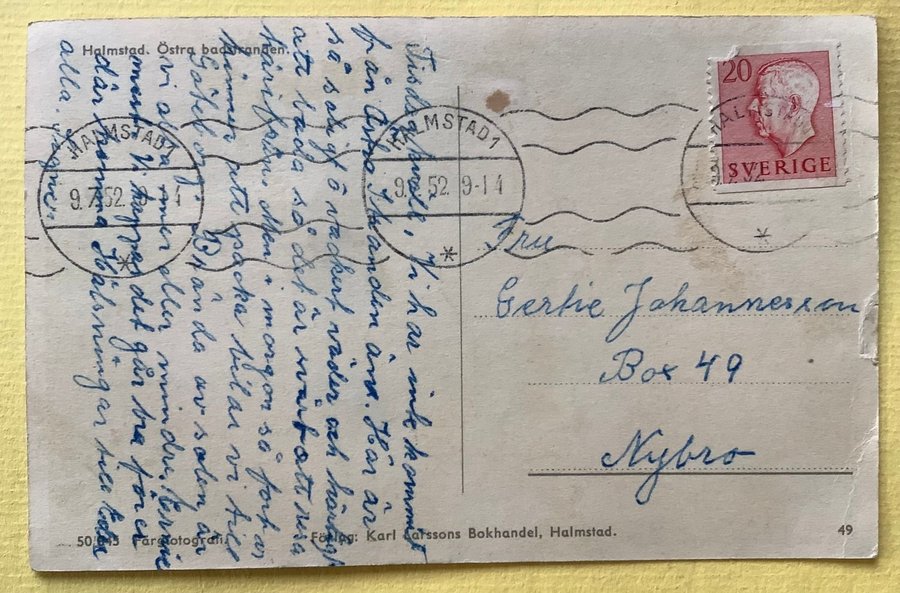 Halmstad. Östra badstranden.
Tisdag kväll, Vi har inte kommit
från Östra Stranden än. Här är
så soligt o vackert väder och härligt
att bada så det är svårt att resa
härifrån. Men i morgon så fort
hinner att packa bilar vi till
Göteborg. Brända av solen är
vi alla mer eller mindre,
mest. Vi hoppas det går bra för er
där hemma. Hälsningar till Eder
alla.
HALMSTAD 1
9.7.52. 9-14
HALMSTAD 1
9.7.52 9-14
HALMSTAD
9.7.52
20
SVERIGE
Fru
Gertie Johannesson
Box 49
Nybro
Färgfotografi
Förlag: Karl Larssons Bokhandel, Halmstad.
49